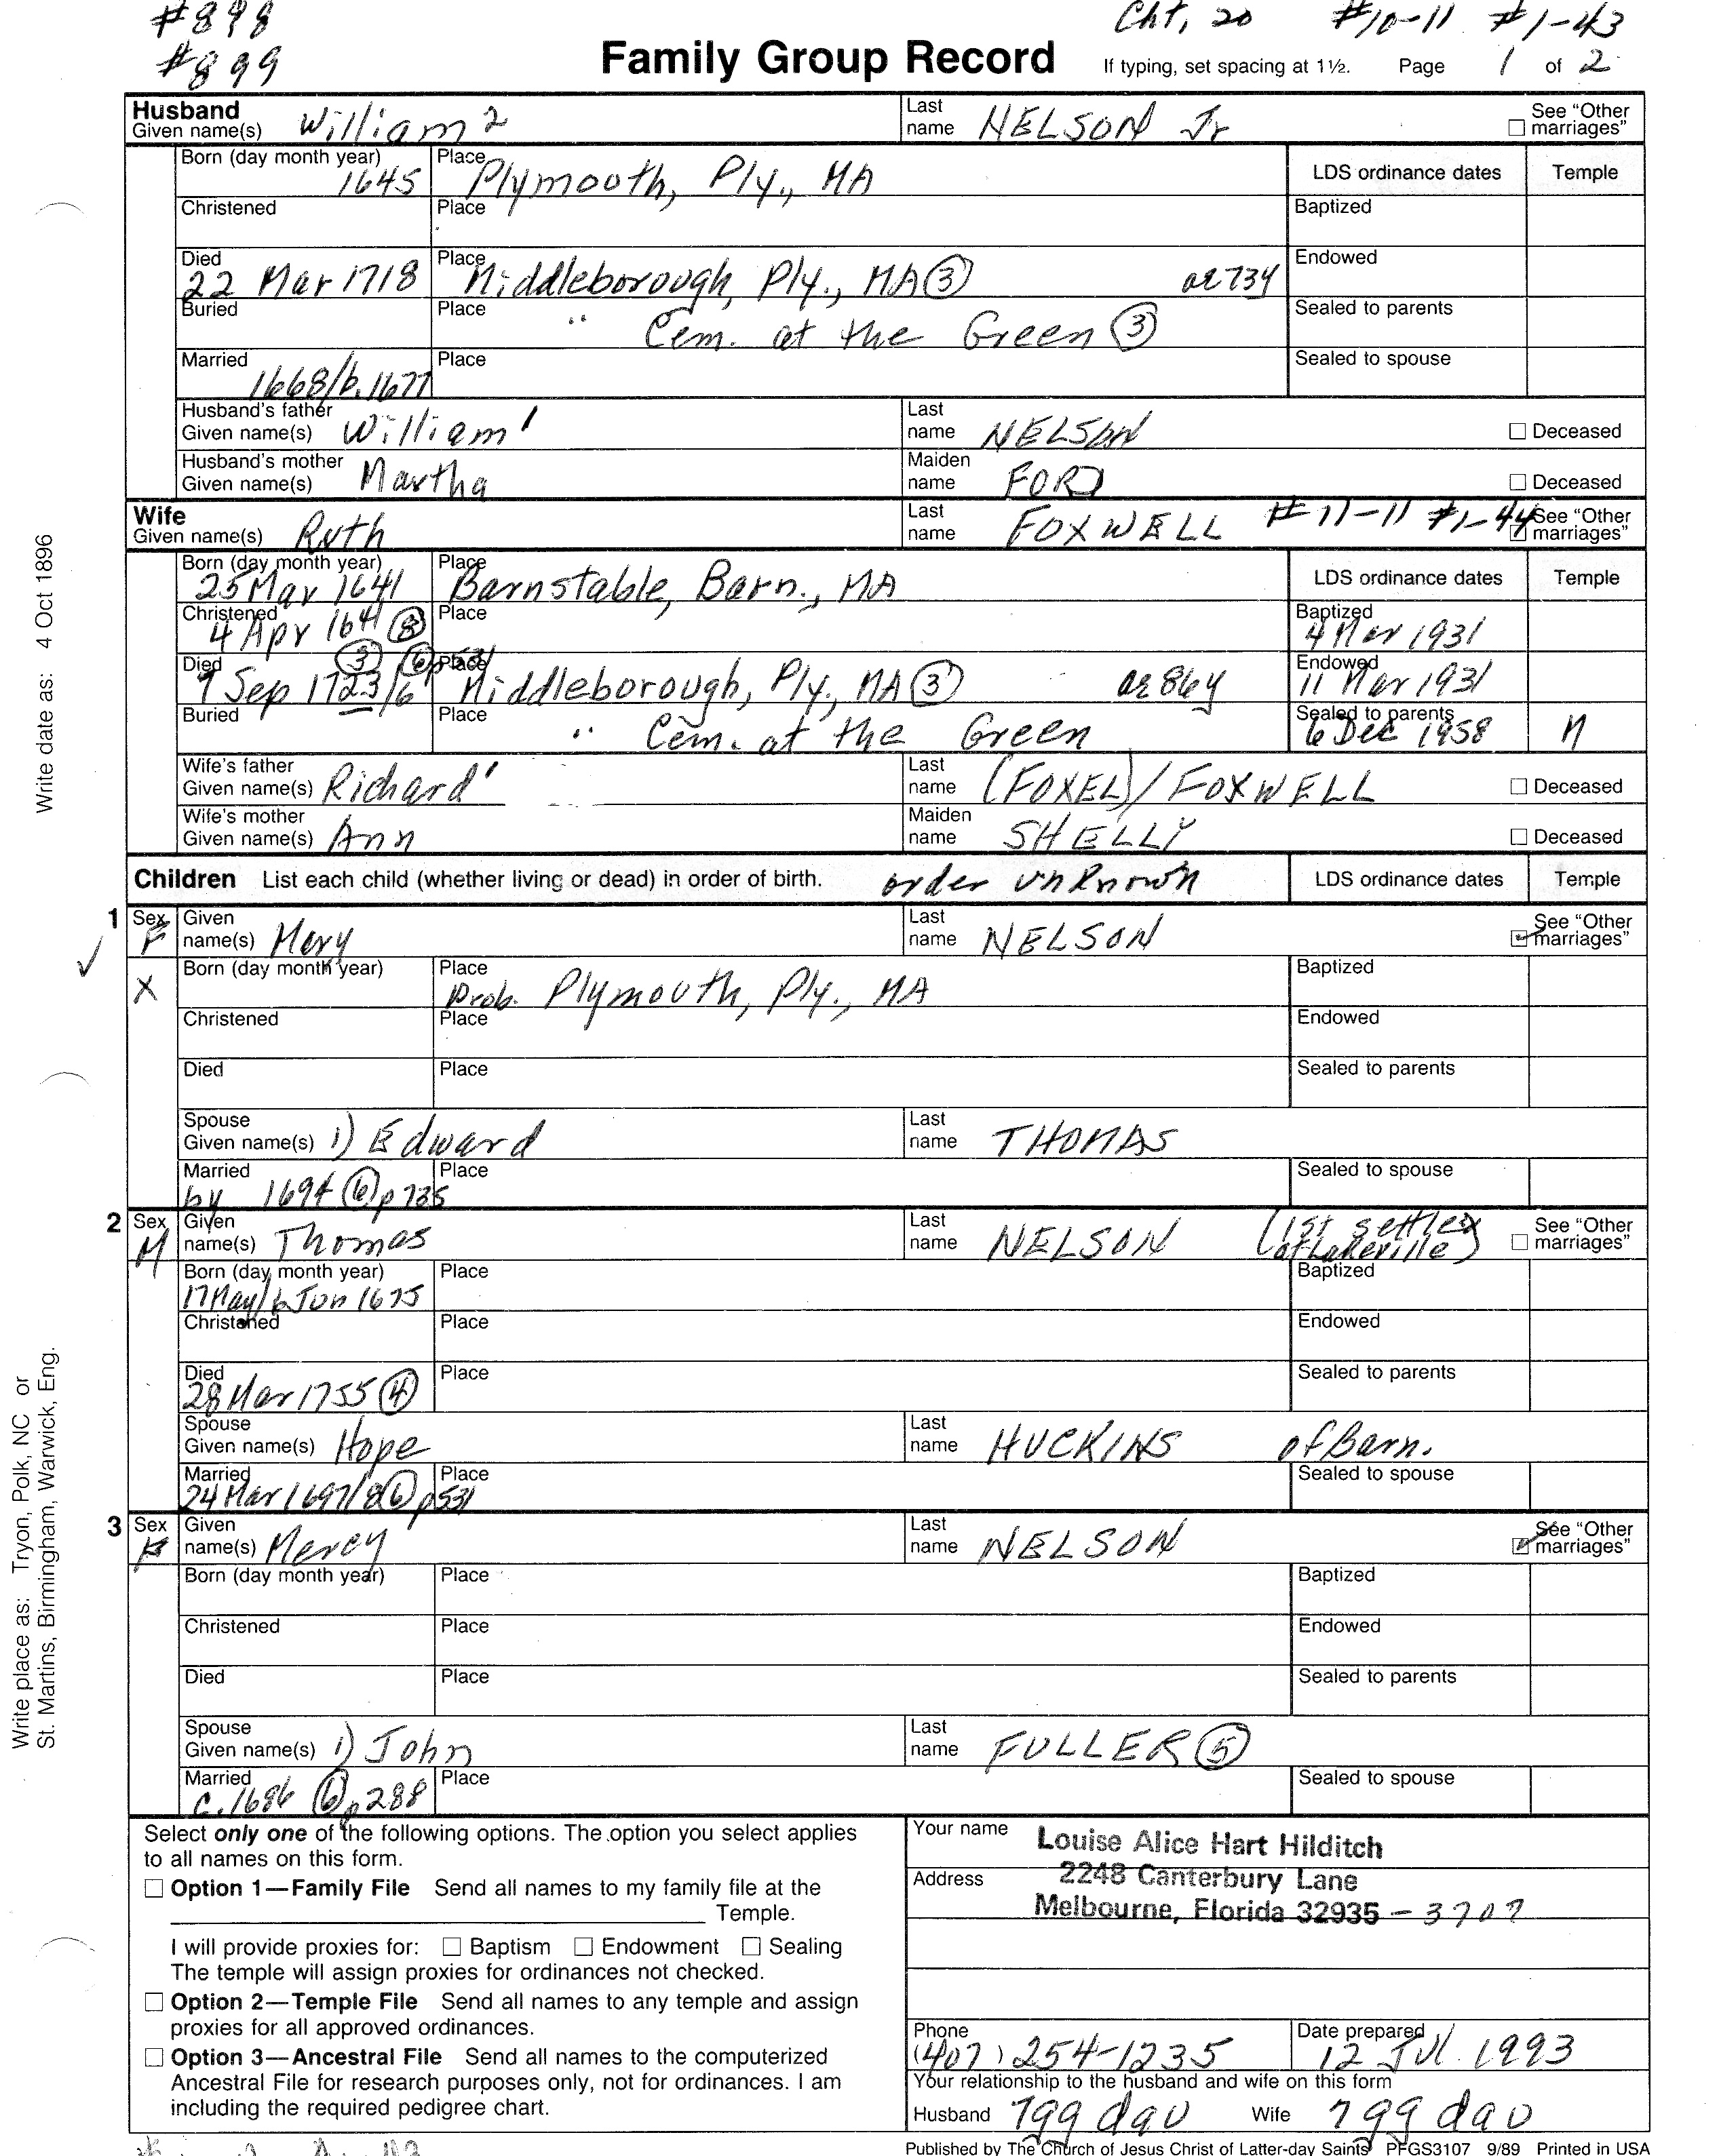 #898 Cht, 20 #10-11 #1-43
#899 Family Group Record If typing, set spacing at 1½. Page 1 of 2
Husband
Given name(s) William 2 Last name NELSON Jr See "Other marriages"
Born (day month year) 1645 Place Plymouth, Ply., MA LDS ordinance dates Temple
Christened Place Baptized
Died 22 Mar 1718 Place Middleborough, Ply., MA (3) ae 73y Endowed
Buried Place " Cem. at the Green (3) Sealed to parents
Married 1668/b. 1677 Place Sealed to spouse
Husband's father
Given name(s) William 1 Last name NELSON Deceased
Husband's mother
Given name(s) Martha Maiden name FORD Deceased
Wife
Given name(s) Ruth Last name FOXWELL #11-11 #1-44 See "Other marriages"
Born (day month year) 25 Mar 1641 Place Barnstable, Barn., MA LDS ordinance dates Temple
Christened 4 Apr 1641 (8) Place Baptized 4 Mar 1931
Died (3) (6) p531 7 Sep 1723/6 Place Middleborough, Ply., MA (3) ae 86y Endowed 11 Mar 1931
Buried Place " Cem. at the Green Sealed to parents 6 Dec 1958
Wife's father
Given name(s) Richard 1 Last name (FOXEL)/FOXWELL Deceased
Wife's mother
Given name(s) Ann Maiden name SHELLY Deceased
Children List each child (whether living or dead) in order of birth. order unknown LDS ordinance dates Temple
1 Sex F Given name(s) Mary Last name NELSON See "Other marriages"
X Born (day month year) Place Prob. Plymouth, Ply., MA Baptized
Christened Place Endowed
Died Place Sealed to parents
Spouse
Given name(s) 1) Edward Last name THOMAS
Married by 1694 (6) p735 Place Sealed to spouse
2 Sex M Given name(s) Thomas Last name NELSON (1st settler at Lakeville) See "Other marriages"
Born (day month year) 17 May/6 Jun 1675 Place Baptized
Christened Place Endowed
Died 28 Mar 1755 (4) Place Sealed to parents
Spouse
Given name(s) Hope Last name HUCKINS of Barn.
Married 24 Mar 1697/8 (6) p531 Place Sealed to spouse
3 Sex F Given name(s) Mercy Last name NELSON See "Other marriages"
Born (day month year) Place Baptized
Christened Place Endowed
Died Place Sealed to parents
Spouse
Given name(s) 1) John Last name FULLER (5)
Married c. 1686 (6) p288 Place Sealed to spouse
Select only one of the following options. The option you select applies
to all names on this form.
Option 1—Family File Send all names to my family file at the
Temple.
I will provide proxies for: Baptism Endowment Sealing
The temple will assign proxies for ordinances not checked.
Option 2—Temple File Send all names to any temple and assign
proxies for all approved ordinances.
Option 3—Ancestral File Send all names to the computerized
Ancestral File for research purposes only, not for ordinances. I am
including the required pedigree chart.
Your name Louise Alice Hart Hilditch
Address 2248 Canterbury Lane
Melbourne, Florida 32935 - 3707
Phone (407) 254-1235 Date prepared 12 Jul 1993
Your relationship to the husband and wife on this form
Husband 7gg dau Wife 7gg dau
Published by The Church of Jesus Christ of Latter-day Saints PFGS3107 9/89 Printed in USA
Write date as: 4 Oct 1896
Write place as: Tryon, Polk, NC or
St. Martins, Birmingham, Warwick, Eng.